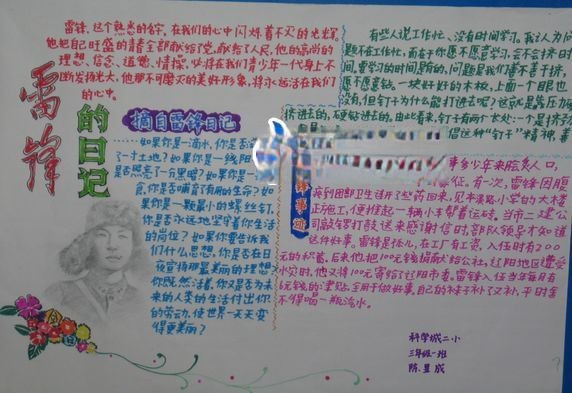 雷锋的日记
雷锋，这个熟悉的名字，在我们的心中闪烁着不灭的光芒。
他把自己旺盛的青春全部献给了党，献给了人民，他的高尚的
理想、信念、道德、情操，必将在我们青少年一代身上不
断发扬光大，他那不可磨灭的美好形象，将永远活在我们
的心中。
摘自雷锋日记
……如果你是一滴水，你是否滋
了一寸土地？如果你是一线阳
是否照亮了一分黑暗？如果你是一
食，你是否哺育了有用的生命？如
果你是一颗最小的螺丝钉，
你是否永远地坚守着你生活
的岗位？如果你要告诉我
们什么思想，你是否在日
夜宣扬那最美丽的理想？
你既然活着，你又是否为未
来的人类的生活付出你
的劳动，使世界一天天变
得更美丽？
有些人说工作忙、没有时间学习。我认为问
题不在工作忙，而在于你愿不愿意学习，会不会挤时
间。要学习的时间是有的，问题是我们善不善于挤，
愿不愿意钻。一块好好的木板，上面一个眼也
没有，但钉子为什么能钉进去呢？这就是靠压力
挤进去的，硬钻进去的。由此看来，钉子有两个长处：一个是挤劲
倡这种“钉子”精神，善
锋事迹
事多少年来脍炙人口，
象征。有一次，雷锋因腹
疼到团部卫生连开了些药回来，见本溪路小学的大楼
正施工，便推起一辆小车帮着运砖。当市二建公
司敲锣打鼓送来感谢信时，部队领导才知道
这件好事。雷锋是孤儿，在工厂有工资，入伍时有200
元的积蓄。后来他把100元钱捐献给公社，辽阳地区遭受
水灾时，他又将100元寄给了辽阳市委。雷锋入伍当年每月有
6元钱的津贴，全用于做好事，自己的袜子补了又补，平时舍
不得喝一瓶汽水。
科学城二小
三年级一班